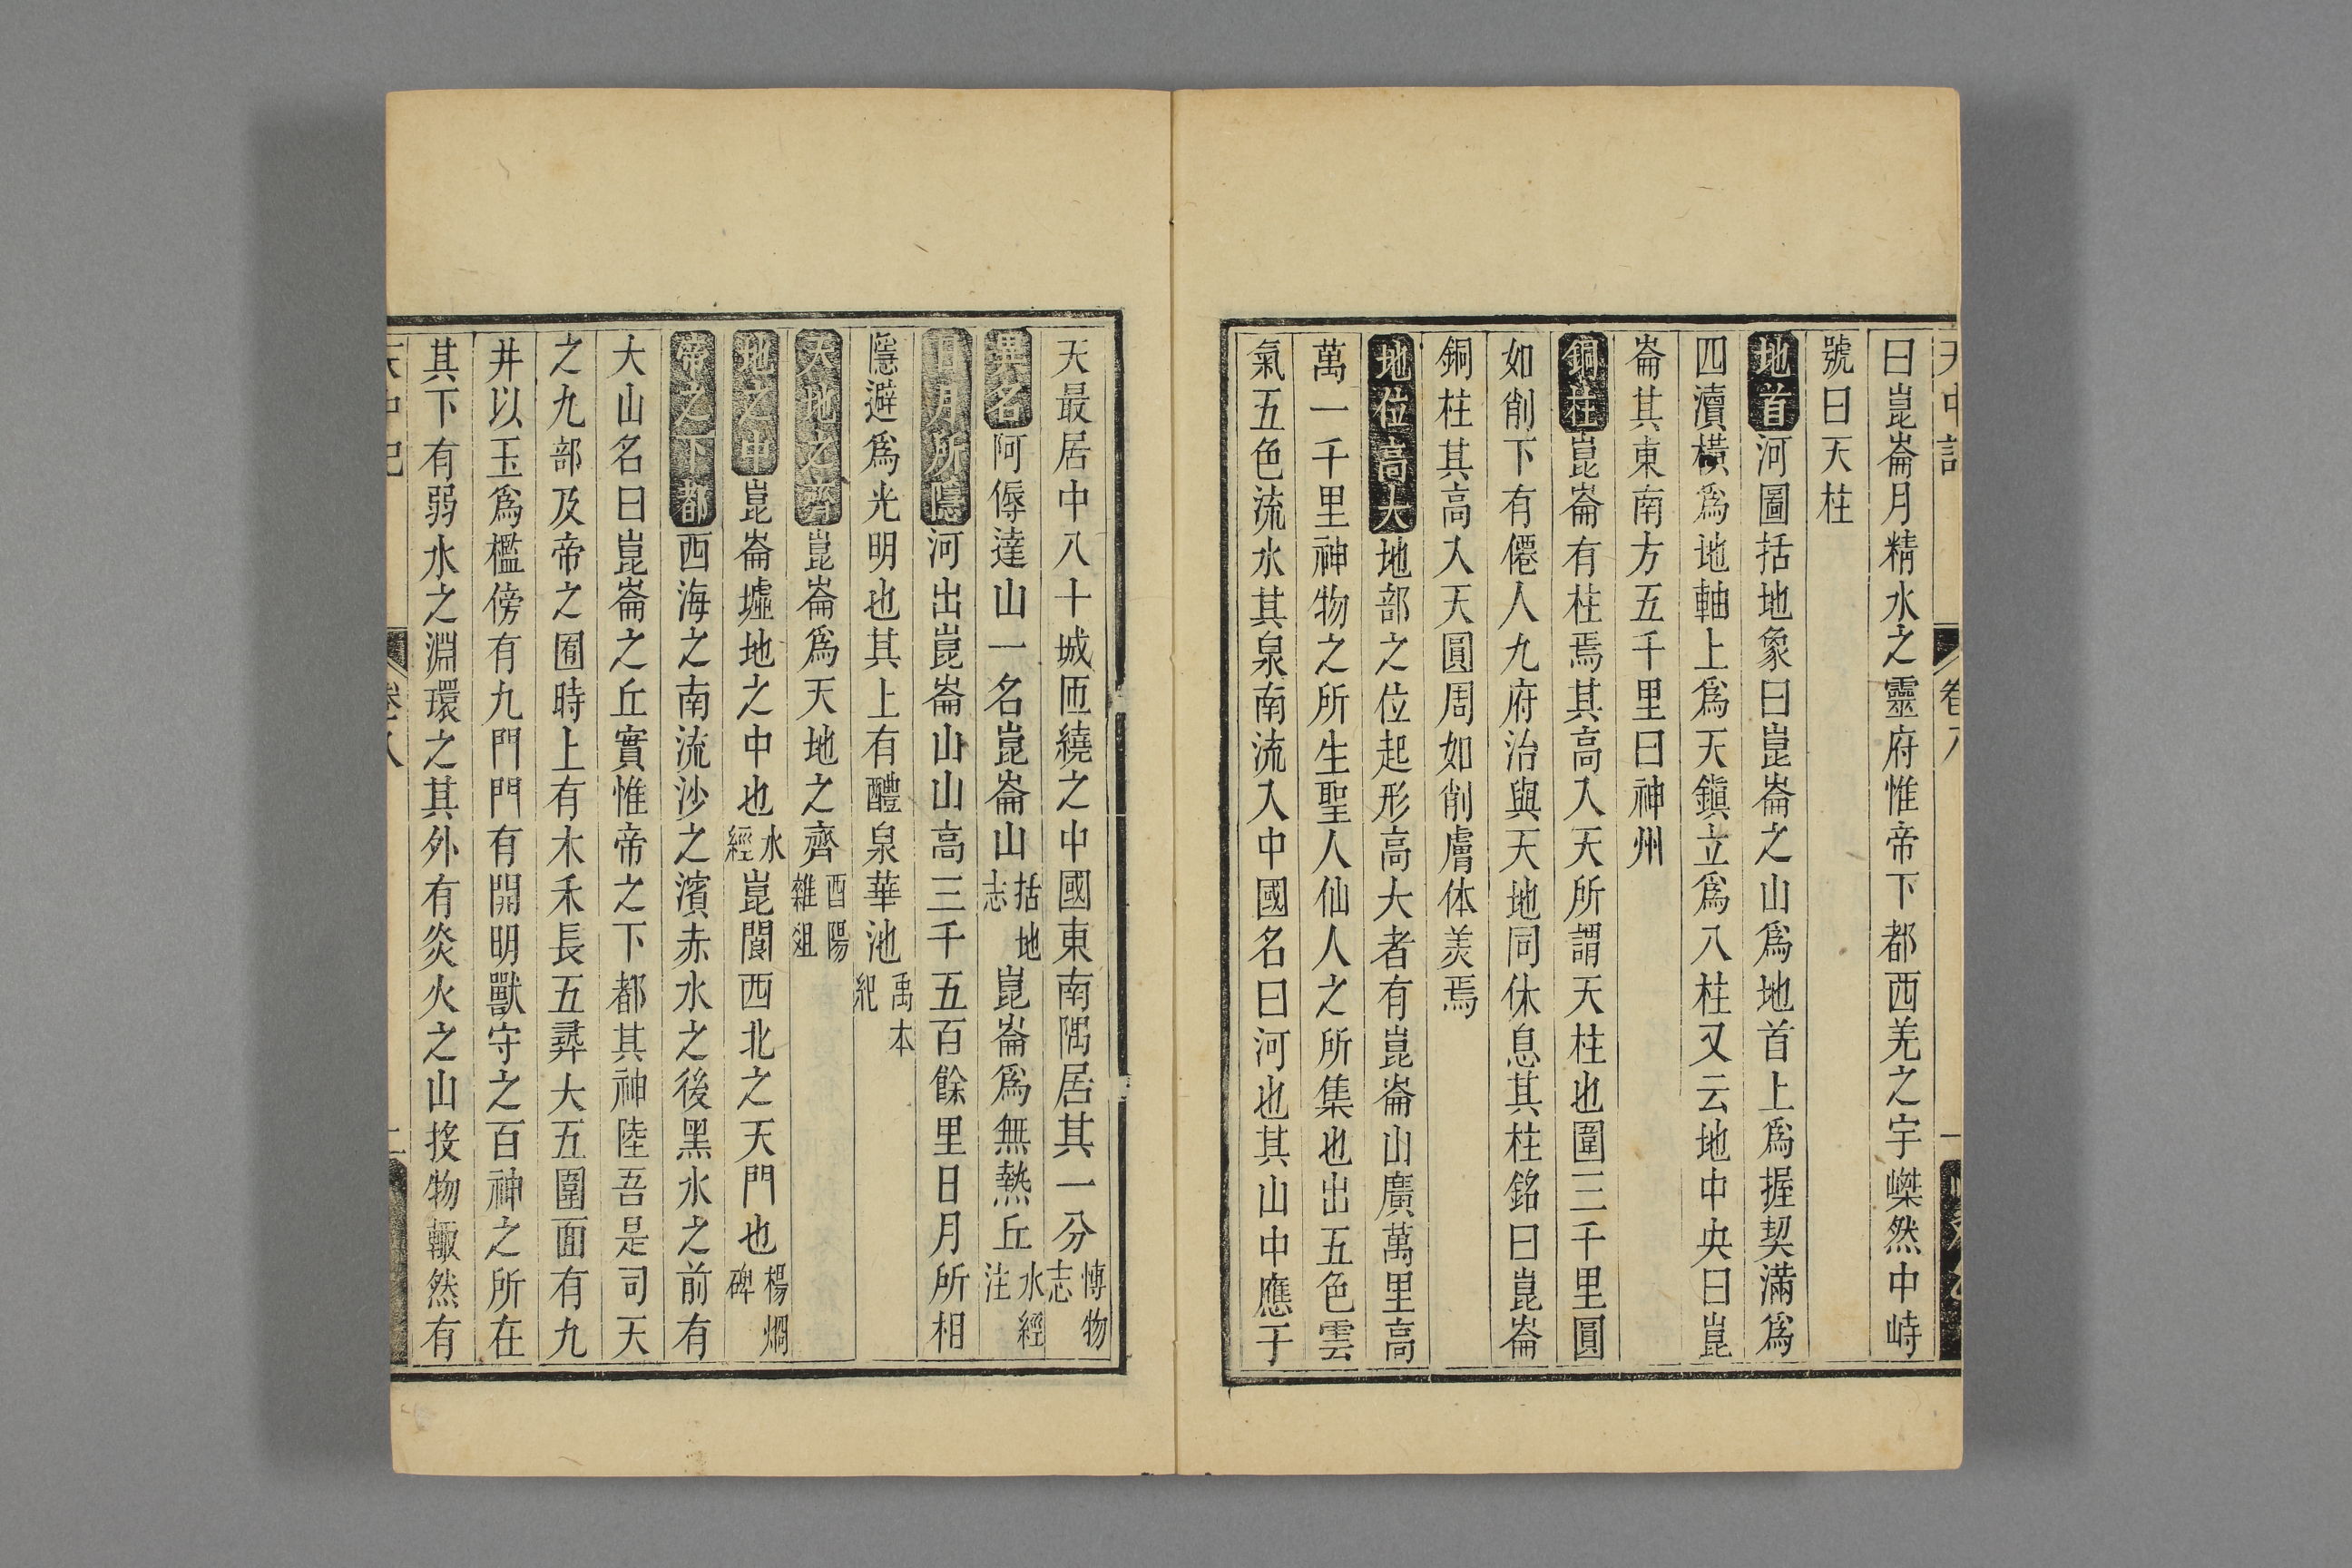 曰崑崙月精水之靈府惟帝下都西羌之宇嶸然中峙
號曰天柱
地首河圖括地象曰崑崙之山爲地首上爲握契滿爲
四瀆橫爲地軸上爲天鎭立爲八柱又云地中央曰崑
崙其東南方五千里曰神州
銅柱崑崙有柱焉其高入天所謂天柱也圍三千里圓
如削下有僊人九府治與天地同休息其柱銘曰崑崙
銅柱其高入天圓周如削膚体羙焉
地位高大地部之位起形高大者有崑崙山廣萬里高
萬一千里神物之所生聖人仙人之所集也出五色雲
氣五色流水其泉南流入中國名曰河也其山中應于
天最居中八十城匝繞之中國東南隅居其一分博物志
異名阿傉達山一名崑崙山括地志崑崙爲無熱丘水經注
日月所隱河出崑崙山山高三千五百餘里日月所相
隱避爲光明也其上有醴泉華池禹本紀
天地之齊崑崙爲天地之齊酉陽雜俎
地之中崑崙墟地之中也水經崑閬西北之天門也楊烱碑
帝之下都西海之南流沙之濱赤水之後黑水之前有
大山名曰崑崙之丘實惟帝之下都其神陸吾是司天
之九部及帝之囿時上有木禾長五尋大五圍面有九
井以玉爲檻傍有九門門有開明獸守之百神之所在
其下有弱水之淵環之其外有炎火之山投物輙然有
卷八